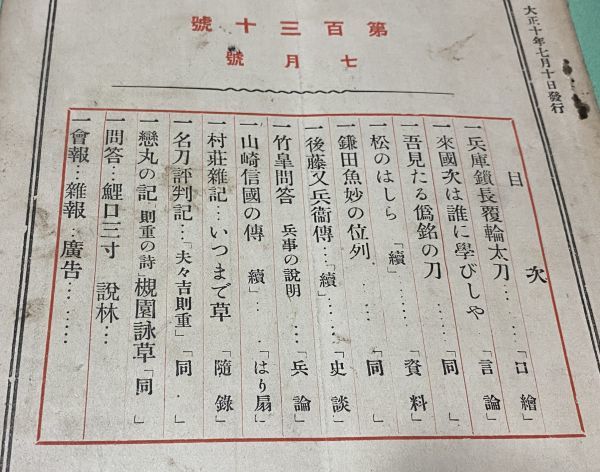 大正十年七月十日發行
第百三十號
七月號
目次
一兵庫鎖長覆輪太刀……「口繪」
一來國次は誰に學びしや……「言論」
一吾見たる僞銘の刀……「同」
一松のはしら「續」……「資料」
一鎌田魚妙の位列……「同」
一後藤又兵衞傳…「續」…「史談」
一竹皐問答 兵事の說明……「兵論」
一山崎信國の傳「續」…「はり扇」
一村莊雜記…いつまで草「隨錄」
一名刀評判記…「夫々吉則重」「同」
一戀丸の記 則重の詩 槻園詠草「同」
一問答…鯉口三寸 說林…
一會報…雜報…廣告………